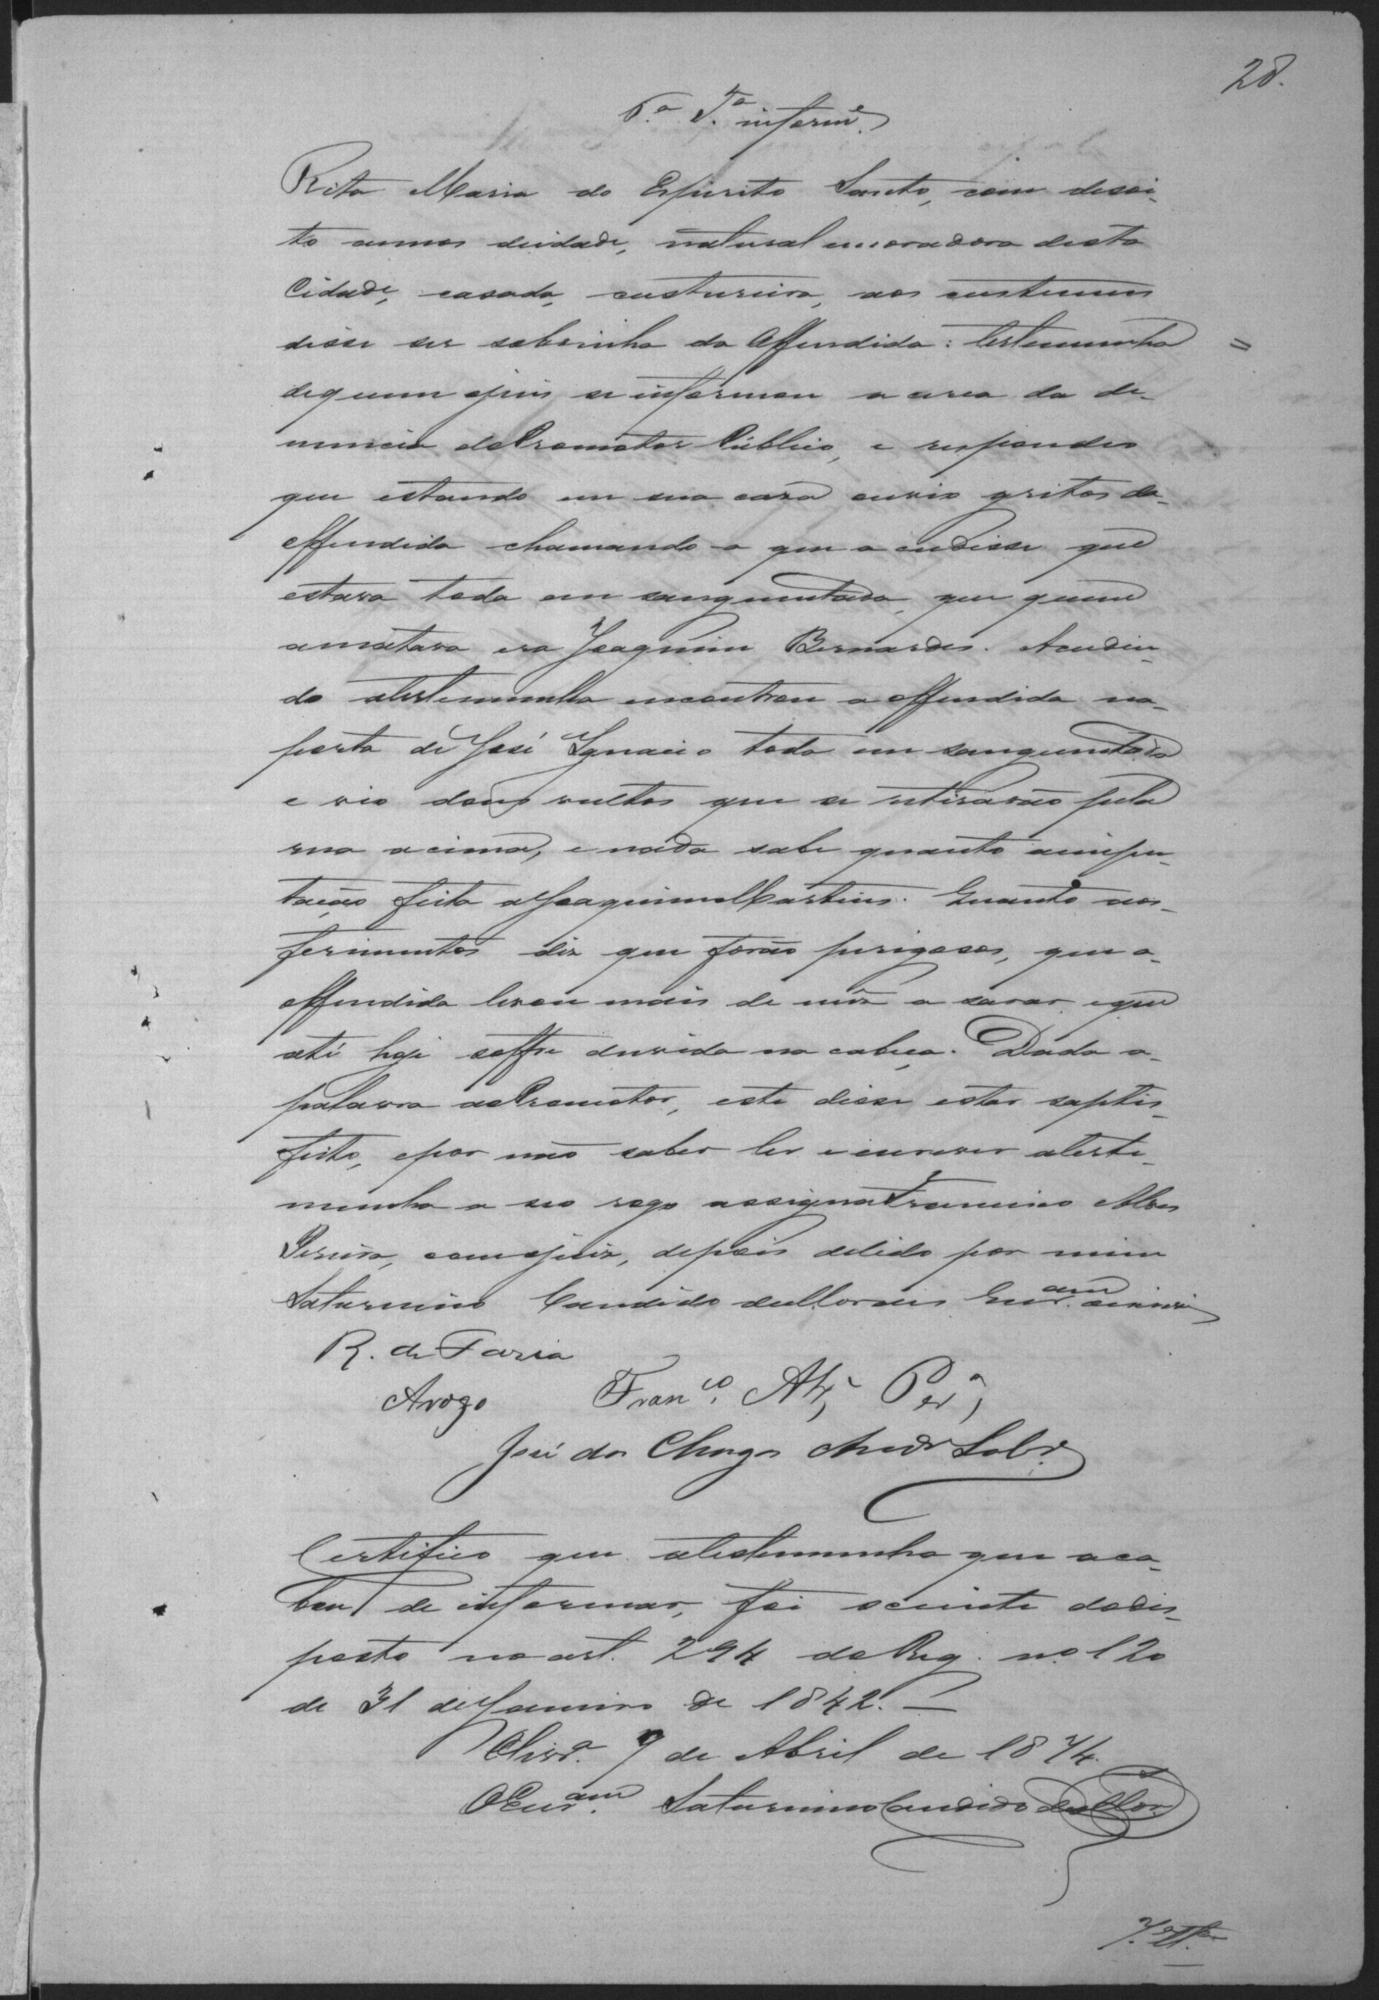 28.
6.ª T.ª inform.e
Rita Maria do Espirito Santo, com desoi-
to annos deidade, natural emoradora desta
Cidade, casada, custureira, aos custumes
disse ser sobrinha da Offendida: testemunha
dequem ojuis se informou a cerca da de-
nuncia doPromotor Publico, e respondeo
que estando em sua casa ouvio gritos da
offendida chamando-a que a cudisse que
estava toda em sanguentada, que quem
amatava era Joaquim Bernardes. Acudin-
do atestemunha encontrou a offendida na
porta de José Ignacio toda em sanguentada
e vio dous vultos que se retiravão pela
rua acima, e nada sabe quanto aimpu-
tação feita aJoaquim Martins. Quanto aos
ferimentos diz que forão perigosos, que a
offendida levou mais de mez a sarar eque
até hoje soffre duvida na cabeça. Dada a
palavra aoPromotor, este disse estar saptis-
feito, epor não saber ler e escrever ateste-
munha a seo rogo assigna Francisco Alves
Pereira, comojuiz, depois delido por mim
Saturnino Candido deMoraes Escr.am oescrevi
R. de Faria
Arogo Fran.co Alz Per.a
José das Chagas Andr Sobr.
Certifico que atestemunha que aca-
bou de informar, foi sciente dodis-
posto no art. 294 doReg. no. 120
de 31 deJaneiro de 1842. —
Olivr.a 7 de Abril de 1874.
OEscr.am Saturnino Candido deMor.